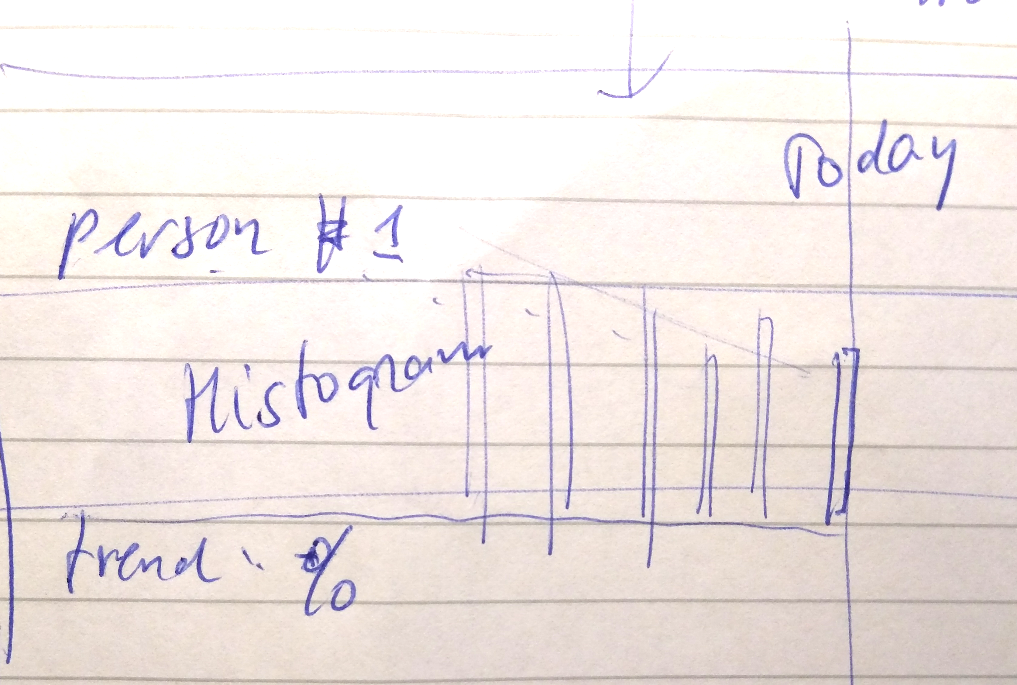 Today
person #1
Histogram
trend: %